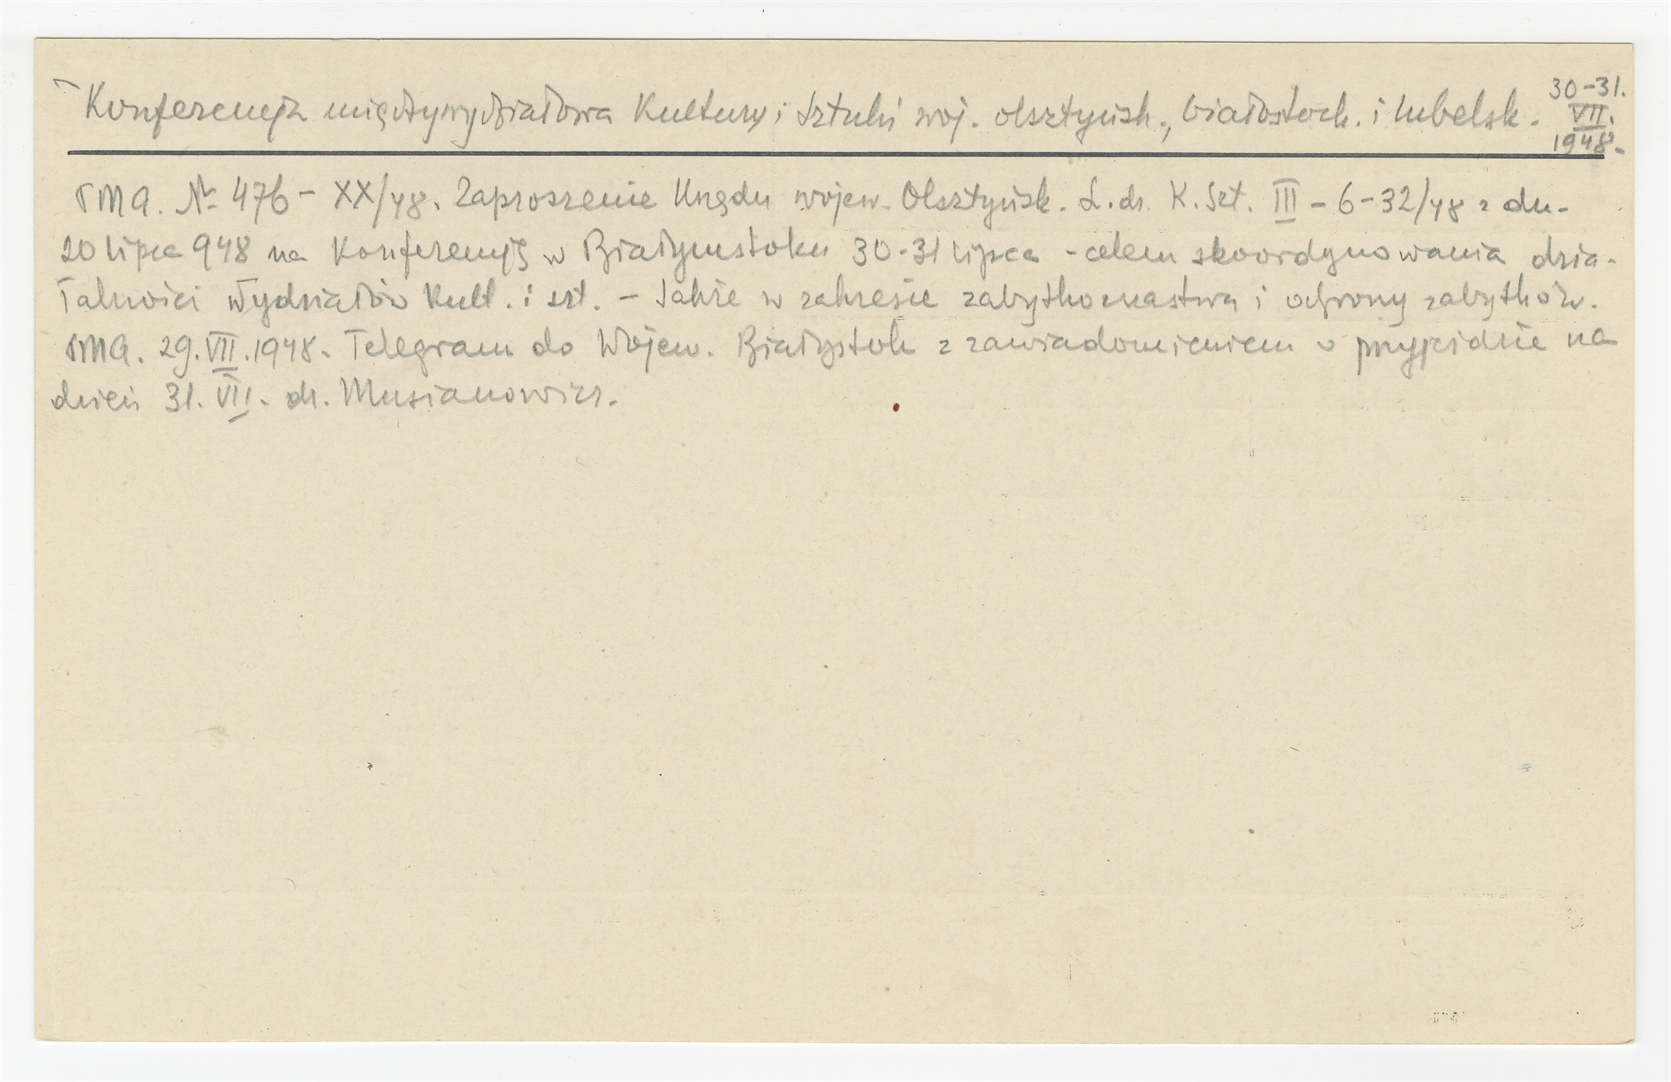 Konferencja międzywydziałowa Kultury i Sztuki woj. olsztyńsk., białostock. i lubelsk. 30-31. VII. 1948.
PMA. № 476 - XX/48. Zaproszenie Urzędu wojew. Olsztyńsk. L.dz. K.Szt. III - 6-32/48 z dn.
20 lipca 948 na Konferencję w Białymstoku 30-31 lipca - celem skoordynowania dzia-
łalności Wydziałów Kult. i szt. - także w zakresie zabytkoznastwa i ochrony zabytków.
PMA. 29.VII.1948. Telegram do Wojew. Białystok z zawiadomieniem o przyjeździe na
dzień 31. VII. dr. Musianowicz.